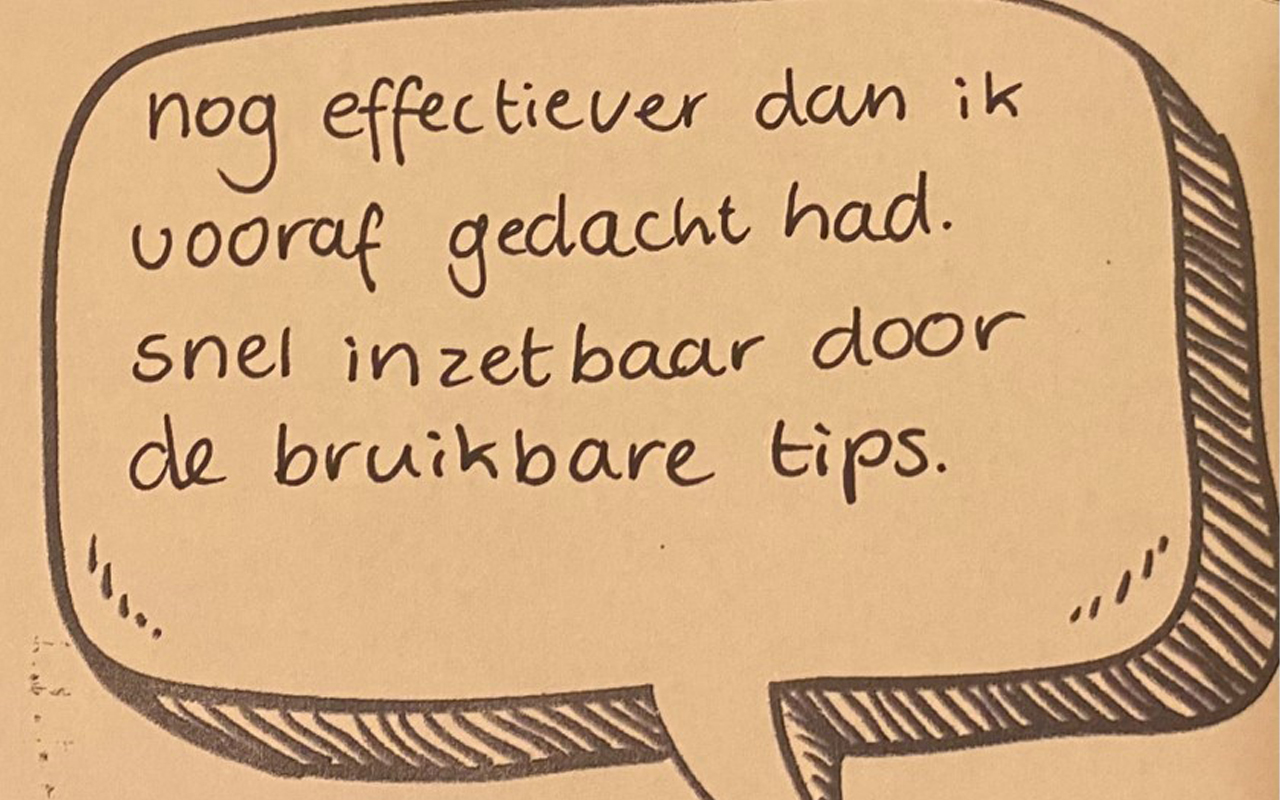 nog effectiever dan ik
vooraf gedacht had.
snel inzetbaar door
de bruikbare tips.